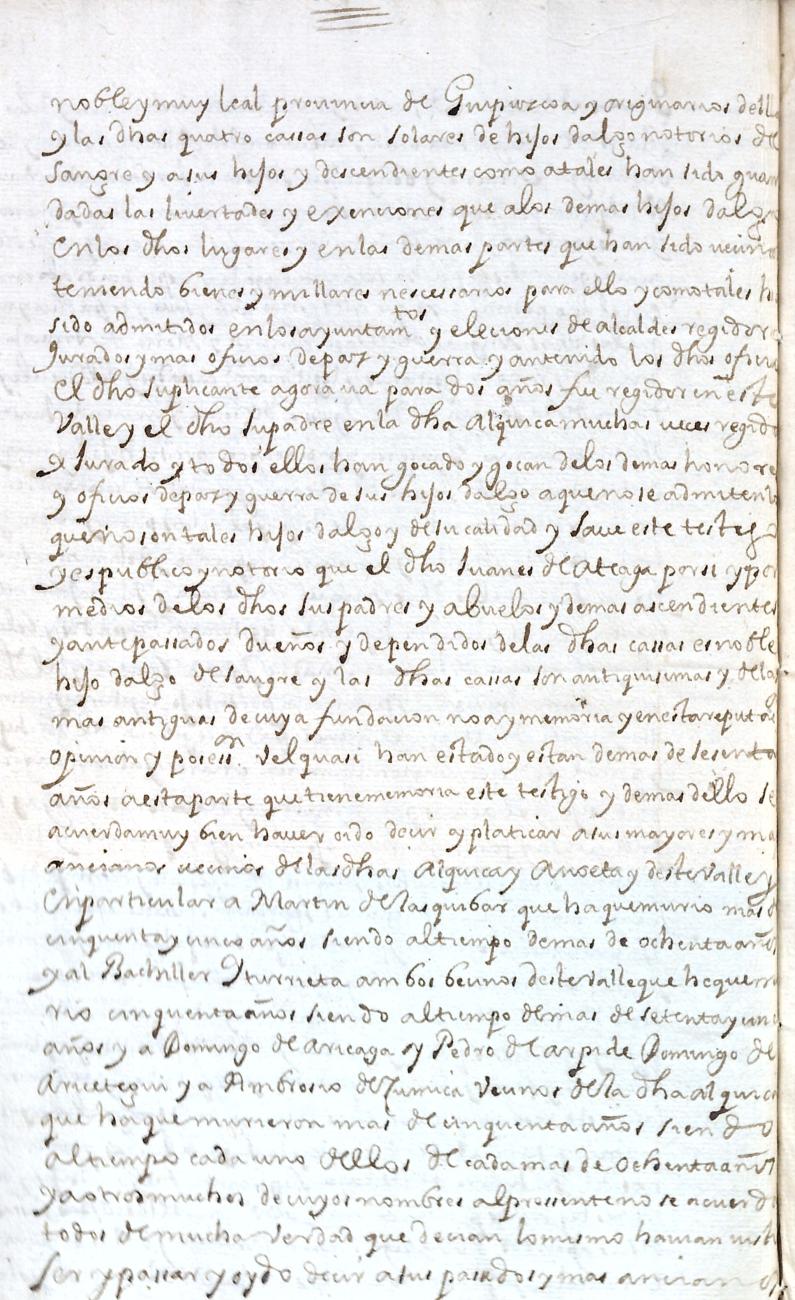 noble y muy leal provincia de Guipuzcoa y originarios della
y las dhas quatro cassas son solares de hijos dalgo notorios de
sangre y a sus hijos y descendientes como atales han sido guar
dadas las livertades y exenciones que alos demas hijos dalgo
en los dhos lugares y en las demas partes que han sido vecino
teniendo bienes y millares nescessarios para ello y como tales h
sido admitidos en los ayuntamtos y eleciones de alcaldes regidore
Jurados y mas oficios de paz y guerra y an tenido los dhos ofici
el dho suplicante agora va para dos años fue regidor en este
Valle y el dho su padre en la dha Alquica muchas veces regido
y Jurado y todos ellos han gocado y gocan de los demas honore
y oficios de paz y guerra de sus hijos dalgo a que no se admiten
que no son tales hijos dalgo y de su calidad y save este testgo
y es publico y notorio que el dho Juanes de Ateaga por si y por
medios de los dhos sus padres y abuelos y demas ascendientes
y antepassados dueños y dependidos de las dhas cassas es noble
hijo dalgo de sangre y las dhas cassas son antiquisimas y de las
mas antiguas de cuya fundacion no ay memoria y en esta reputa
opinion y posesson vel quasi han estado y estan demas de sesenta
años a esta parte que tiene memoria este testigo y demas dello se
acuerda muy bien haver oido decir y platicar a sus mayores y ma
ancianos vecinos de las dhas Alquica y Anoeta y deste Valle y
en particular a Martin de Lasquibar que ha que murio mas d
cinquenta y cinco años siendo al tiempo demas de ochenta años
y al Bachiller Yturrieta ambos becinos deste Valle que ha que mu
rio cinquenta años siendo al tiempo demas de setenta y cinc
años y a Domingo de Aricaga y Pedro de Larpide Domingo de
Aricetegui y a Ambrosio de Zumica vecinos de la dha Alquica
que ha que murieron mas de cinquenta años siendo
al tiempo cada uno dellos de cada mas de ochenta años
y a otros muchos de cuyos nombres al pressente no se acuerda
todos de mucha verdad que decian lo mismo havian vist
ser y passar y oydo decir a sus passados y mas ancianos